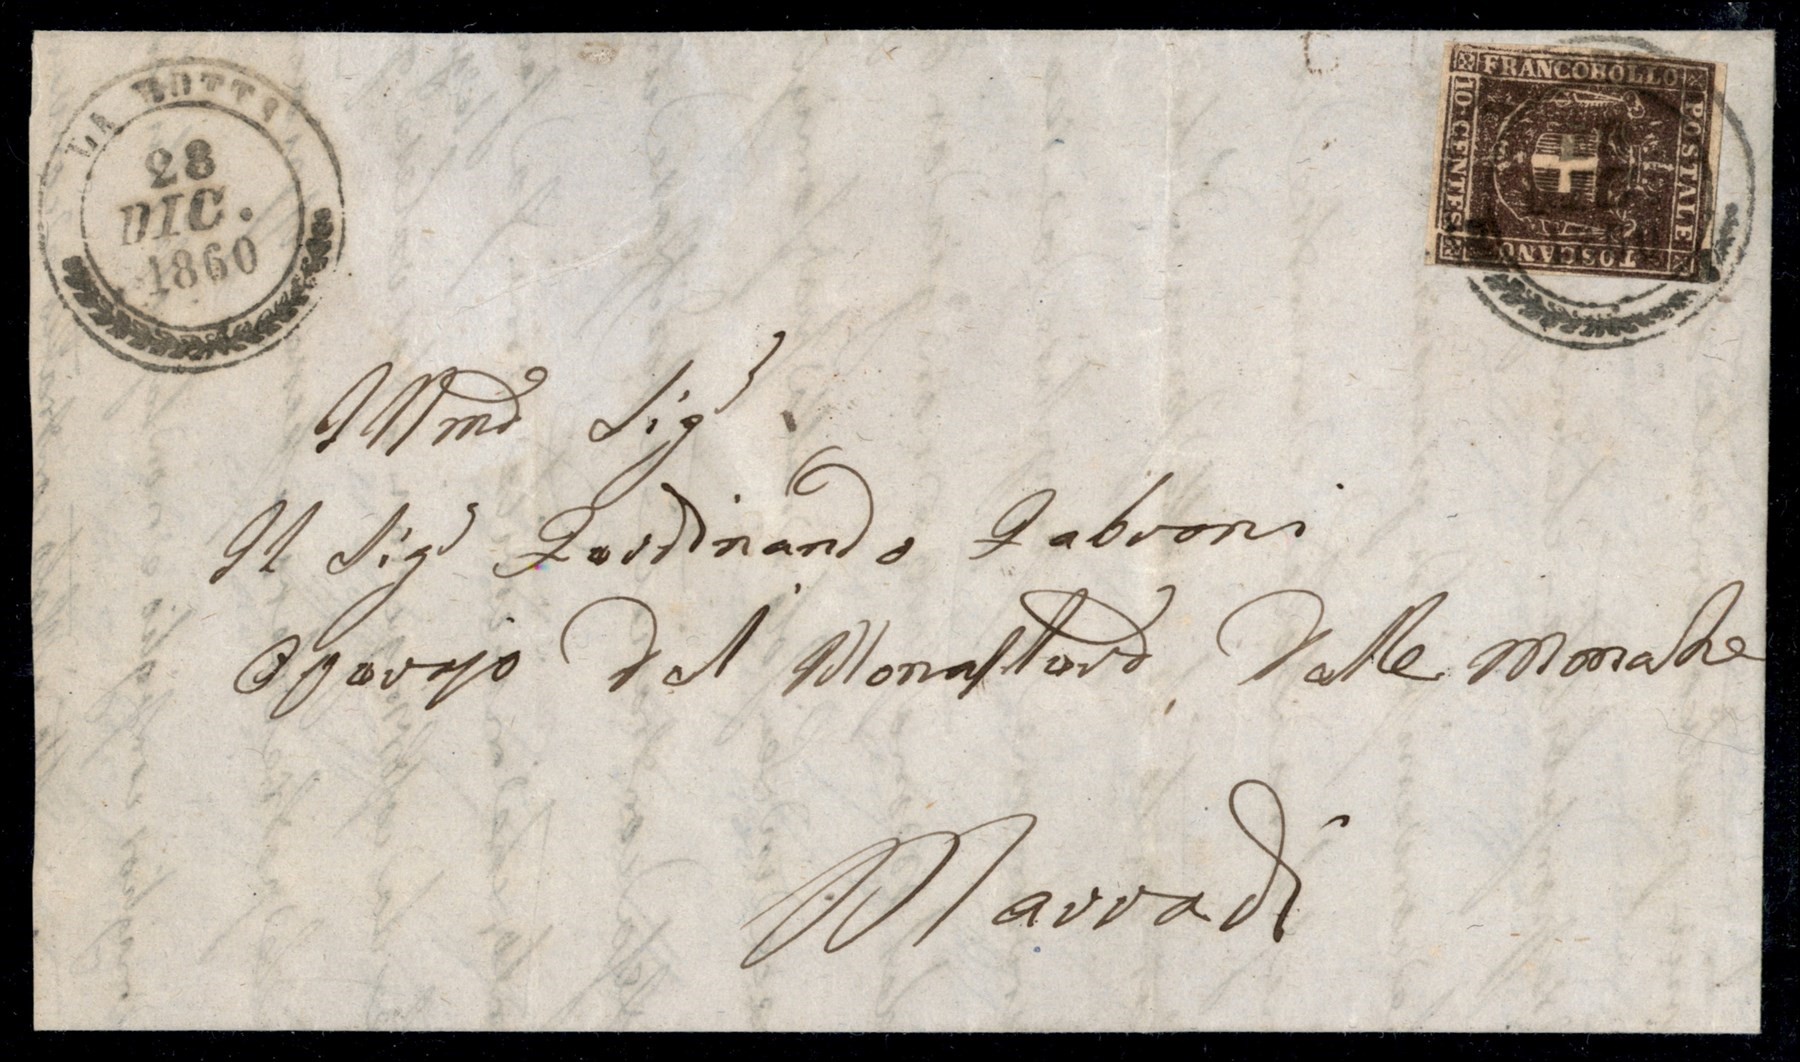 LA BOTTE
28
DIC.
1860
FRANCOBOLLO
POSTALE
TOSCANO
10 CENTES
Illmo Sigr
Il Sigr Ferdinando Fabroni
Operajo del Monastero delle Monache
Marradi